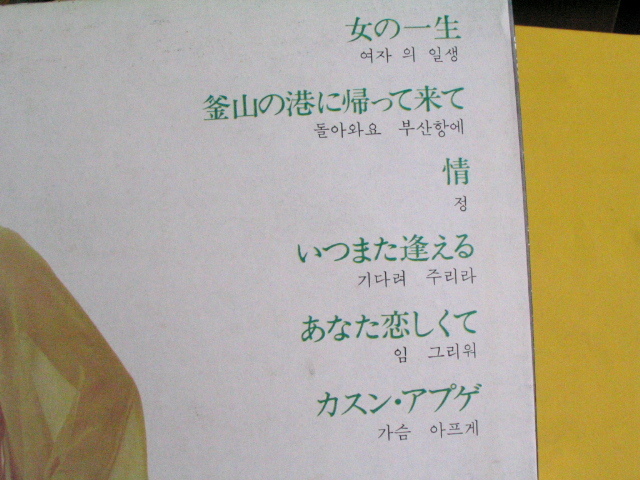 女の一生
여자 의 일생
釜山の港に帰って来て
돌아와요 부산항에
情
정
いつまた逢える
기다려 주리라
あなた恋しくて
임 그리워
カスン・アプゲ
가슴 아프게